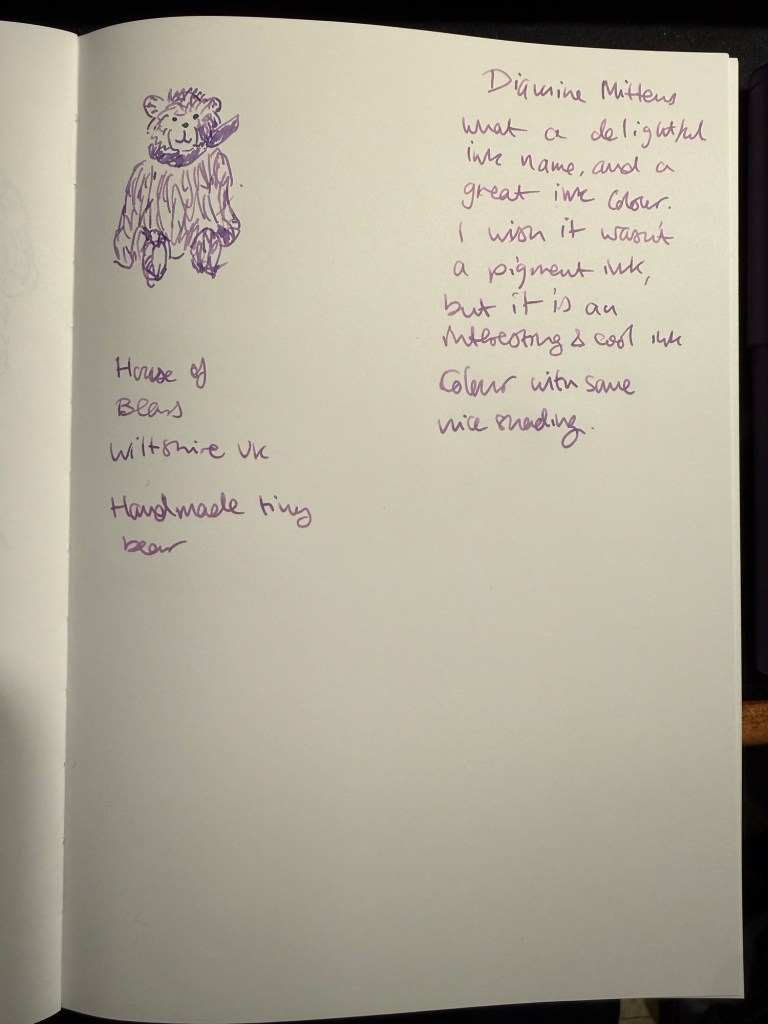 Diamine Mittens
What a delightful
ink name, and a
great ink colour.
I wish it wasn't
a pigment ink,
but it is an
interesting & cool ink
Colour with some
nice shading.
House of
Bears
Wiltshire UK
Handmade tiny
bear